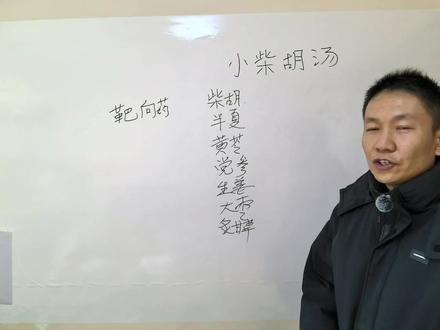 小柴胡汤
靶向药
柴胡
半夏
黄芩
党参
生姜
大枣
炙甘草